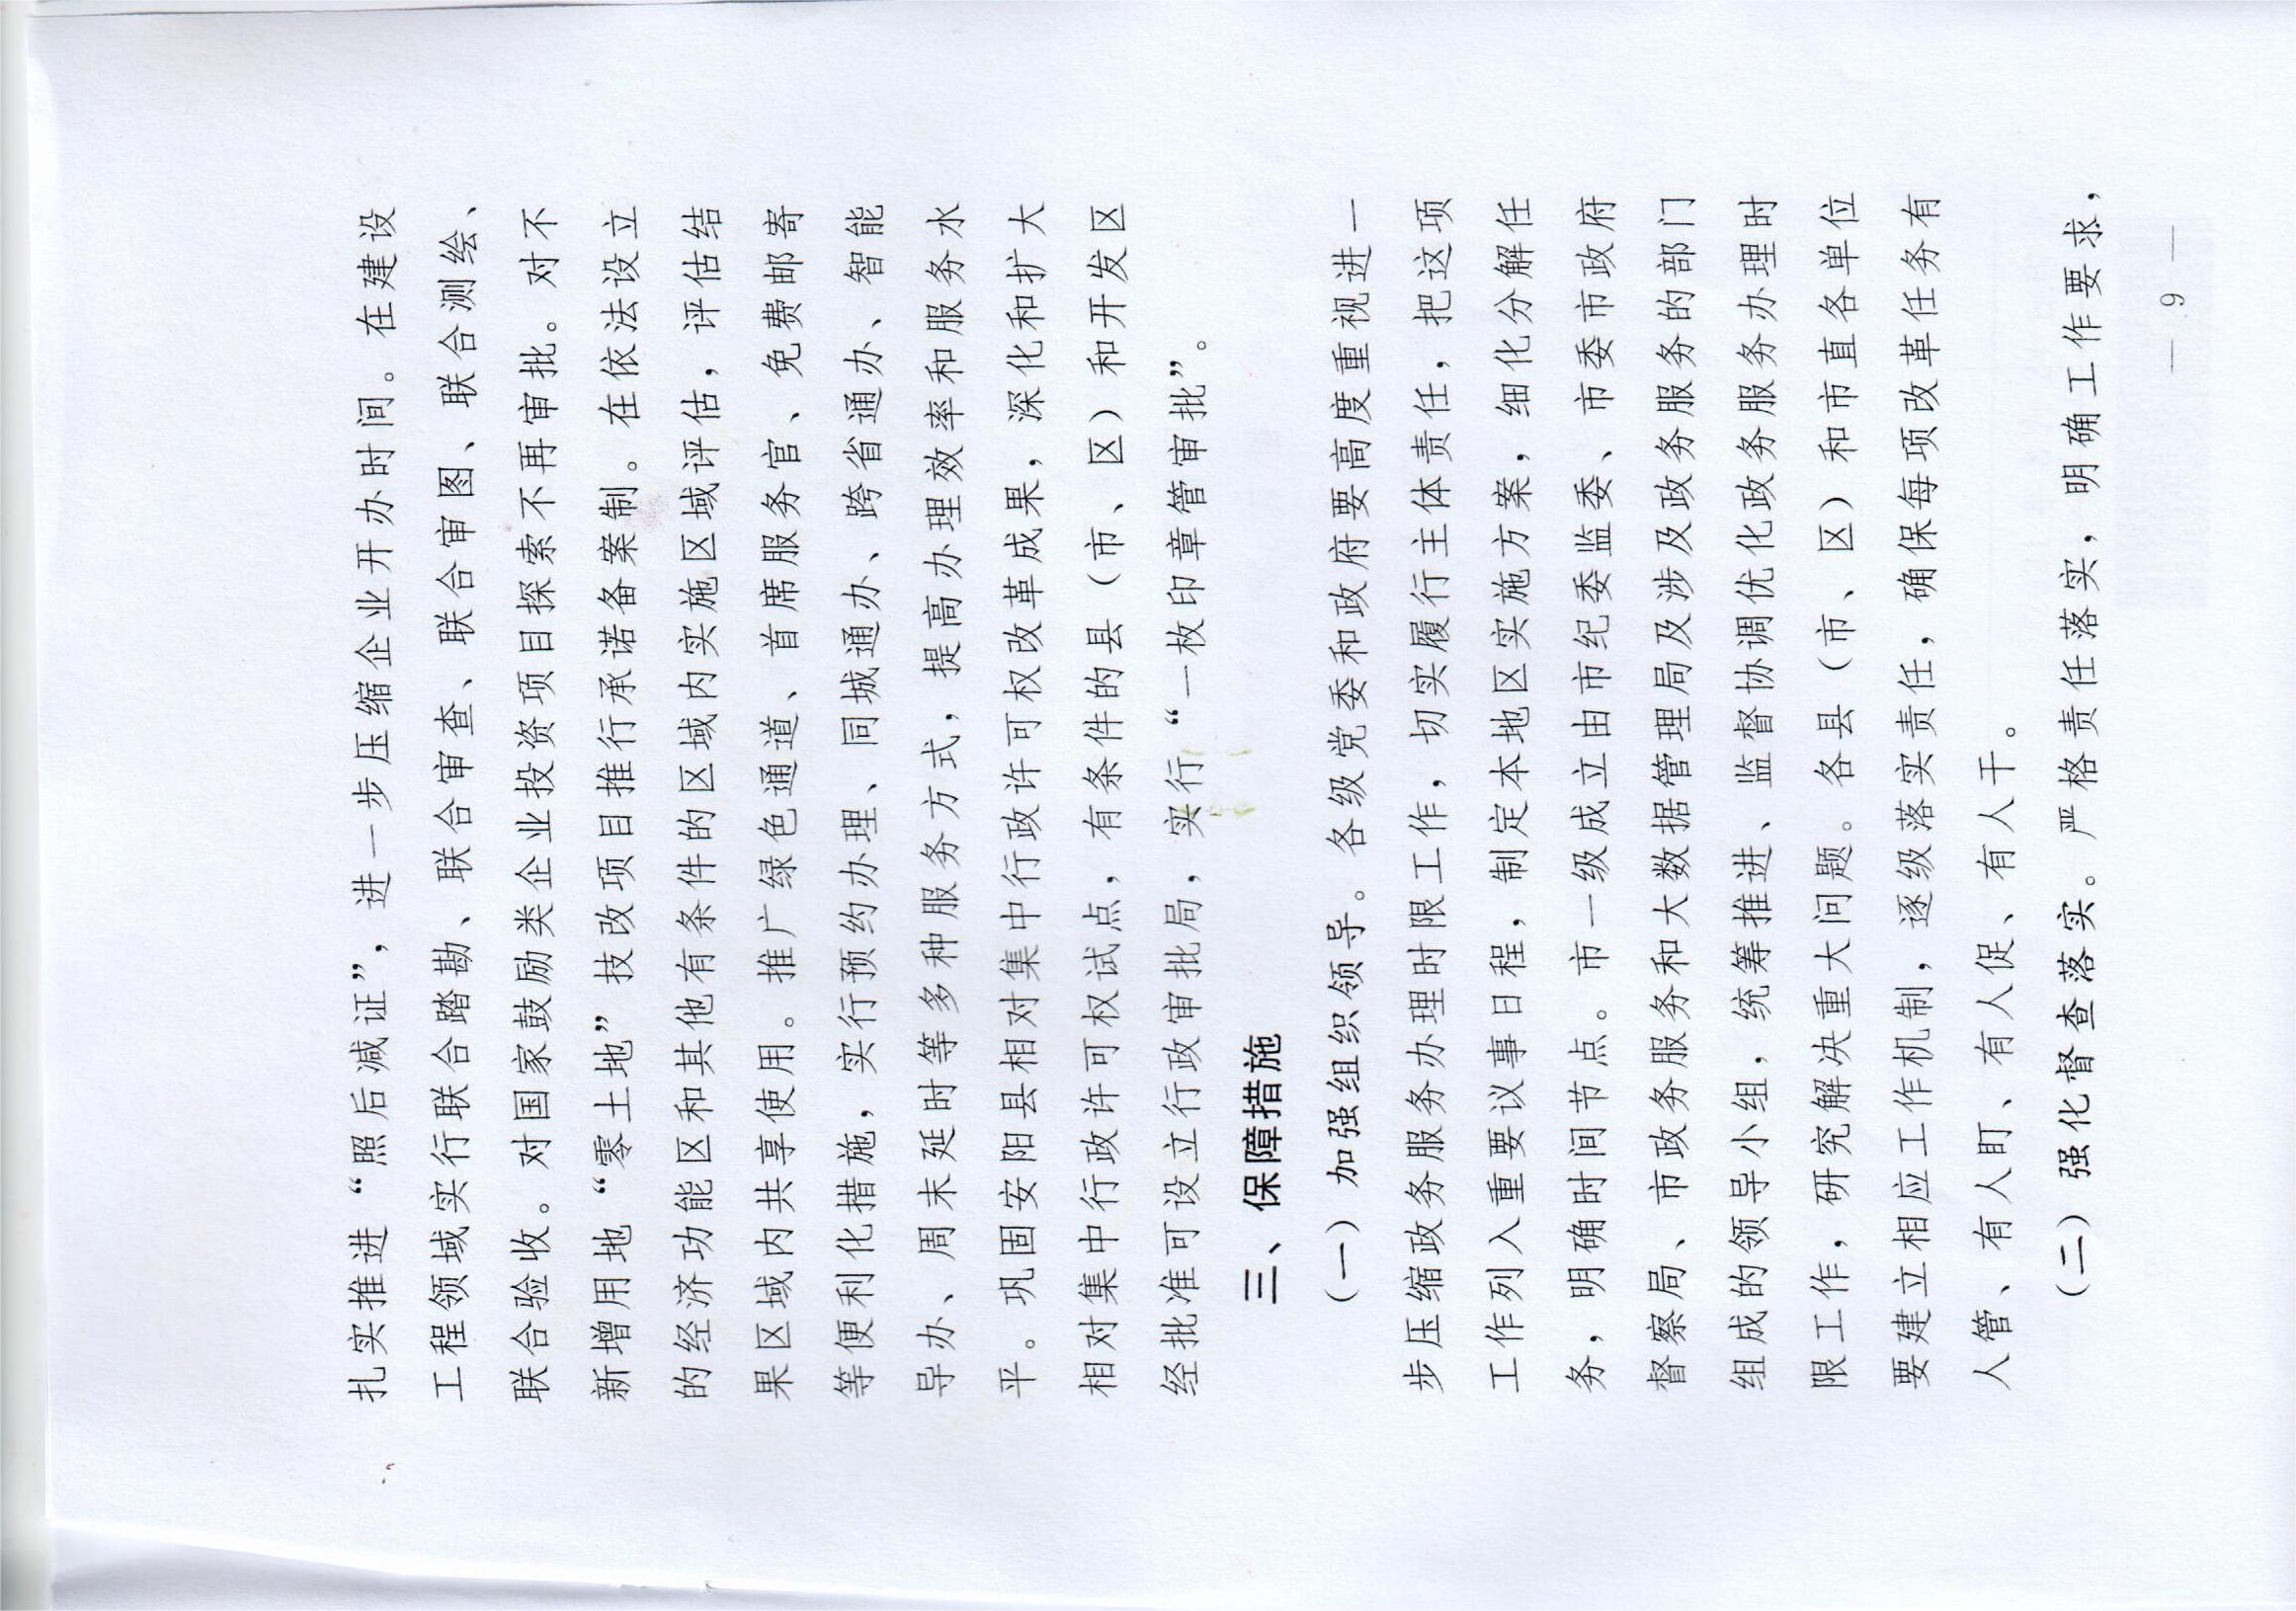 扎实推进“照后减证”，进一步压缩企业开办时间。在建设
工程领域实行联合踏勘、联合审查、联合审图、联合测绘、
联合验收。对国家鼓励类企业投资项目探索不再审批。对不
新增用地“零土地”技改项目推行承诺备案制。在依法设立
的经济功能区和其他有条件的区域内实施区域评估，评估结
果区域内共享使用。推广绿色通道、首席服务官、免费邮寄
等便利化措施，实行预约办理、同城通办、跨省通办、智能
导办、周末延时等多种服务方式，提高办理效率和服务水
平。巩固安阳县相对集中行政许可权改革成果，深化和扩大
相对集中行政许可权试点，有条件的县（市、区）和开发区
经批准可设立行政审批局，实行“一枚印章管审批”。
三、保障措施
（一）加强组织领导。各级党委和政府要高度重视进一
步压缩政务服务办理时限工作，切实履行主体责任，把这项
工作列入重要议事日程，制定本地区实施方案，细化分解任
务，明确时间节点。市一级成立由市纪委监委、市委市政府
督察局、市政务服务和大数据管理局及涉及政务服务的部门
组成的领导小组，统筹推进、监督协调优化政务服务办理时
限工作，研究解决重大问题。各县（市、区）和市直各单位
要建立相应工作机制，逐级落实责任，确保每项改革任务有
人管、有人盯、有人促、有人干。
（二）强化督查落实。严格责任落实，明确工作要求，
— 9 —